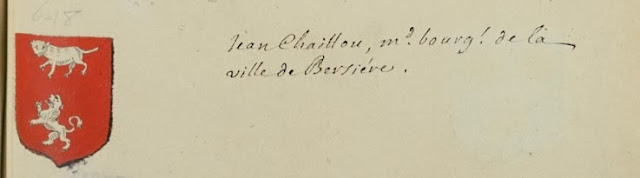 648
Jean Chaillou, md. bourgt. de la
ville de Bersiére.